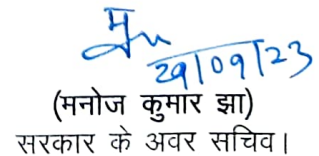 29/09/23
(मनोज कुमार झा)
सरकार के अवर सचिव।